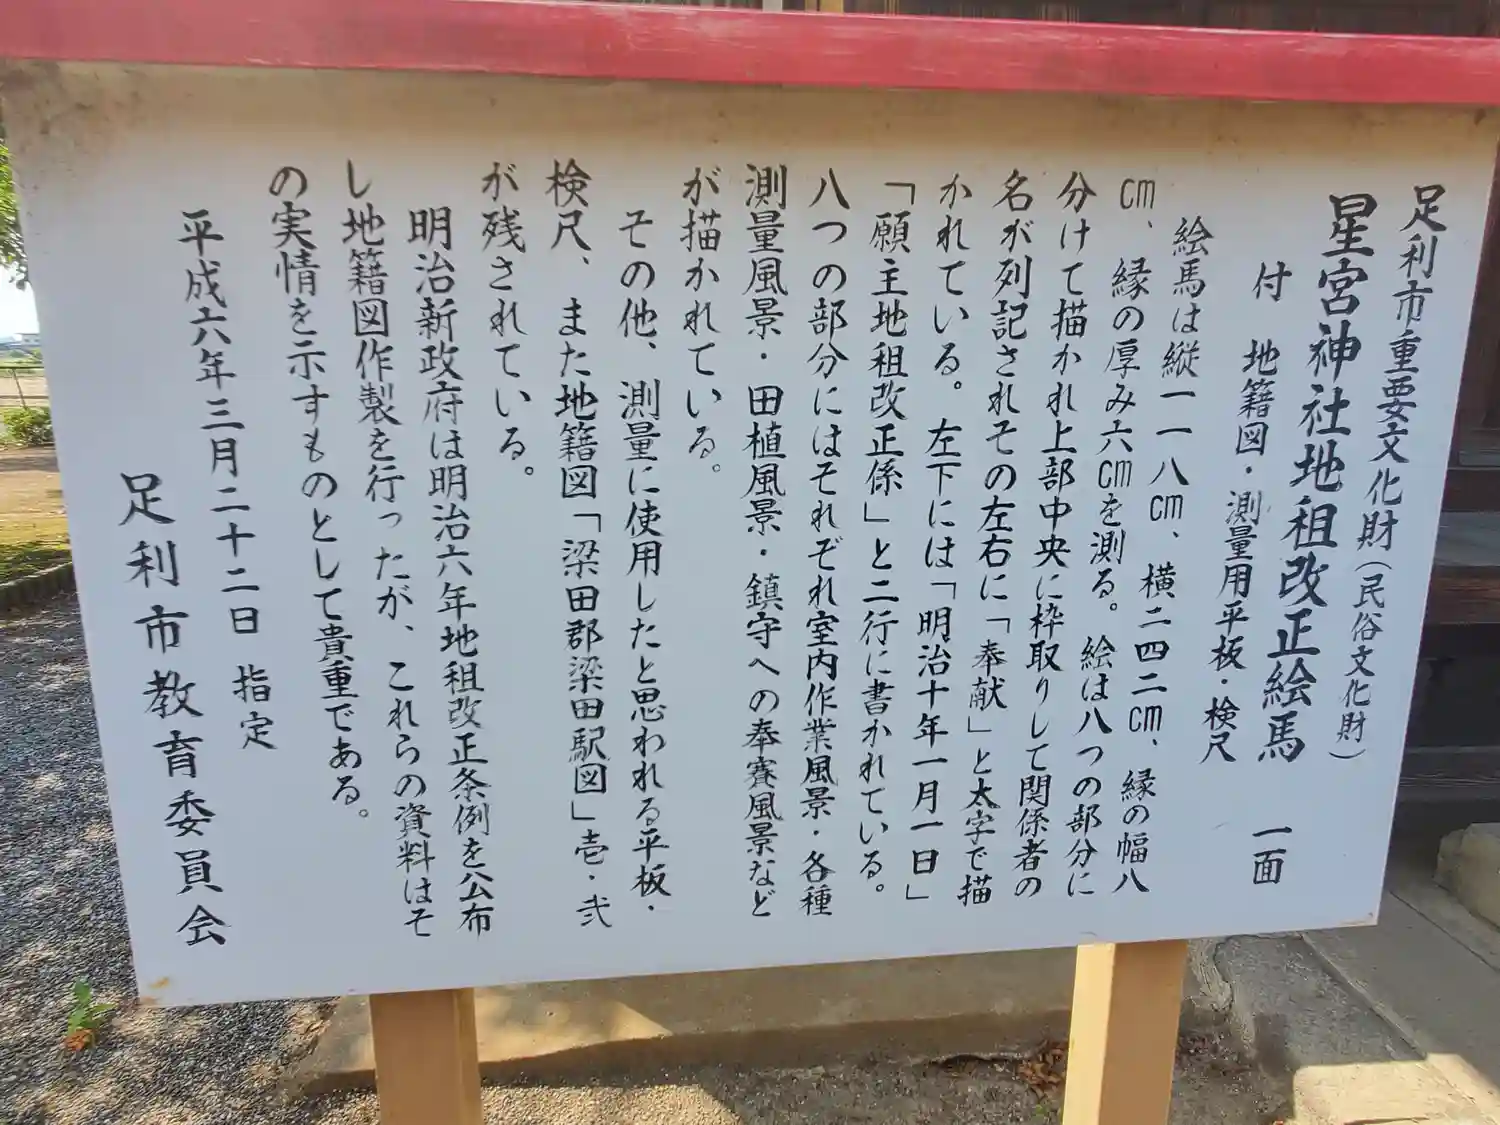 足利市重要文化財(民俗文化財)
星宮神社地租改正絵馬 一面
付 地籍図・測量用平板・検尺
絵馬は縦一一八㎝、横二四二㎝、縁の幅八
㎝、縁の厚み六㎝を測る。絵は八つの部分に
分けて描かれ上部中央に枠取りして関係者の
名が列記されその左右に「奉献」と太字で描
かれている。左下には「明治十年一月一日」
「願主地租改正係」と二行に書かれている。
八つの部分にはそれぞれ室内作業風景・各種
測量風景・田植風景・鎮守への奉賽風景など
が描かれている。
その他、測量に使用したと思われる平板・
検尺、また地籍図「梁田郡梁田駅図」壱・弐
が残されている。
明治新政府は明治六年地租改正条例を公布
し地籍図作製を行ったが、これらの資料はそ
の実情を示すものとして貴重である。
平成六年三月二十二日 指定
足利市教育委員会